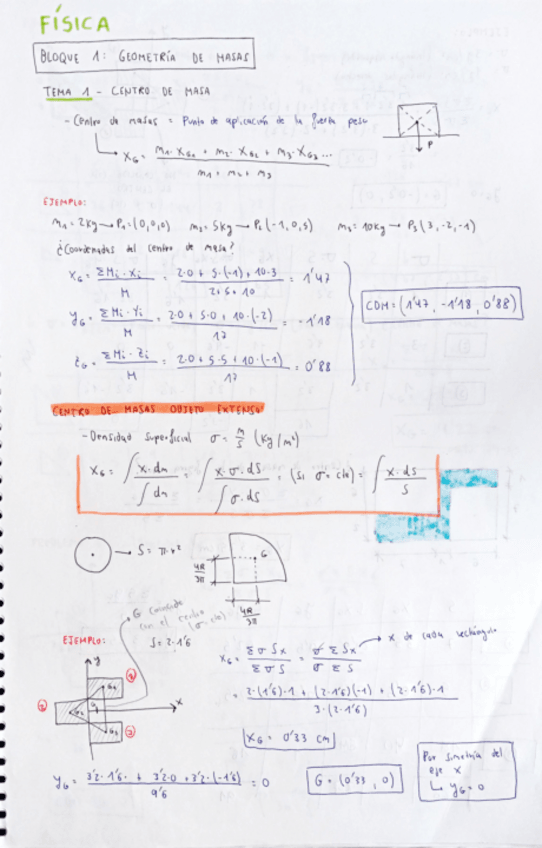 FÍSICA
BLOQUE 1: GEOMETRÍA DE MASAS
TEMA 1 - CENTRO DE MASA
- Centro de masas = Punto de aplicación de la fuerza peso
P
X_G = m₁·X_G₁ + m₂·X_G₂ + m₃·X_G₃... / m₁ + m₂ + m₃
EJEMPLO:
m₁ = 2kg → P₁ = (0,0,0) m₂ = 5kg → P₂ (-1,0,5) m₃ = 10kg → P₃ (3,-2,-1)
¿Coordenadas del centro de masa?
X_G = ΣMi·Xi / M = 2·0 + 5·(-1) + 10·3 / 2+5+10 = 1'47
Y_G = ΣMi·Yi / M = 2·0 + 5·0 + 10·(-2) / 17 = -1'18
CDM = (1'47, -1'18, 0'88)
Z_G = ΣMi·Zi / M = 2·0 + 5·5 + 10·(-1) / 17 = 0'88
CENTRO DE MASAS OBJETO EXTENSO:
- Densidad Superficial σ = m/S (Kg/m²)
X_G = ∫ x·dm / ∫ dm = ∫ x·σ·dS / ∫ σ·dS = (si σ = cte) = ∫ x·ds / S
→ S = π·r²
G
4R/3π
4R/3π
G coincide con el centro (σ = cte)
EJEMPLO:
S = 2·1'6
X_G = Σ σ Sx / Σ σ S = σ Σ Sx / σ Σ S → X de cada rectángulo
= 2·(1'6)·1 + (2·1'6)(-1) + (2·1'6)·1 / 3·(2·1'6)
y
x
G₁
G
G₃
X_G = 0'33 cm
Y_G = 3'2·1'6 + 3'2·0 + 3'2·(-1'6) / 9'6 = 0
G = (0'33, 0)
Por simetría del
eje X
↳ Y_G = 0